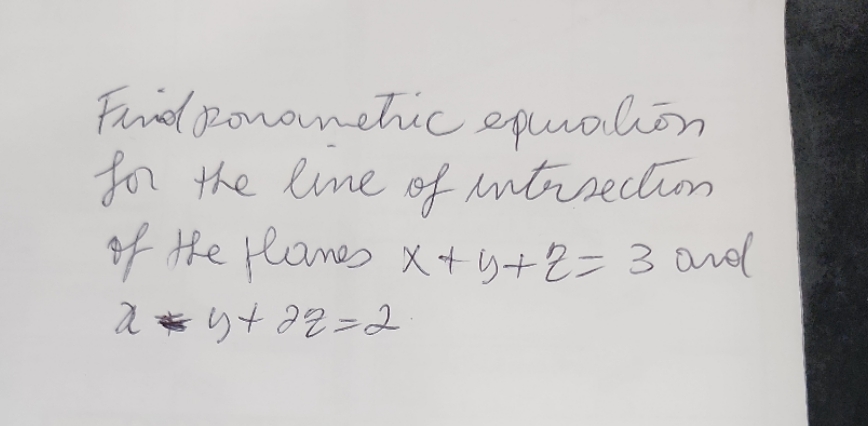 Find parametric equation
for the line of intersection
of the planes x + y + z = 3 and
x - y + 2z = 2